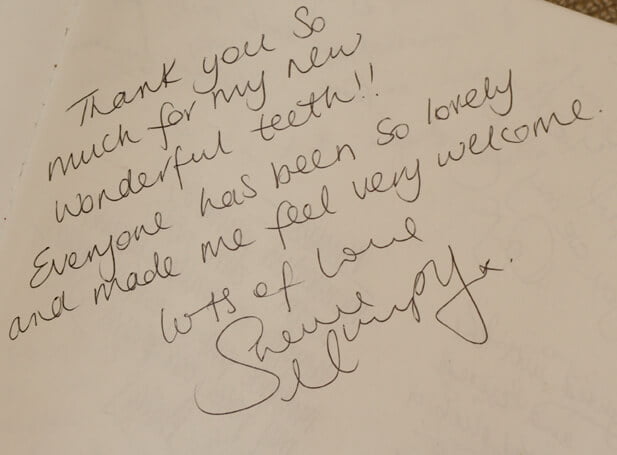 Thank you so
much for my new
wonderful teeth!!
Everyone has been so lovely
and made me feel very welcome.
lots of love